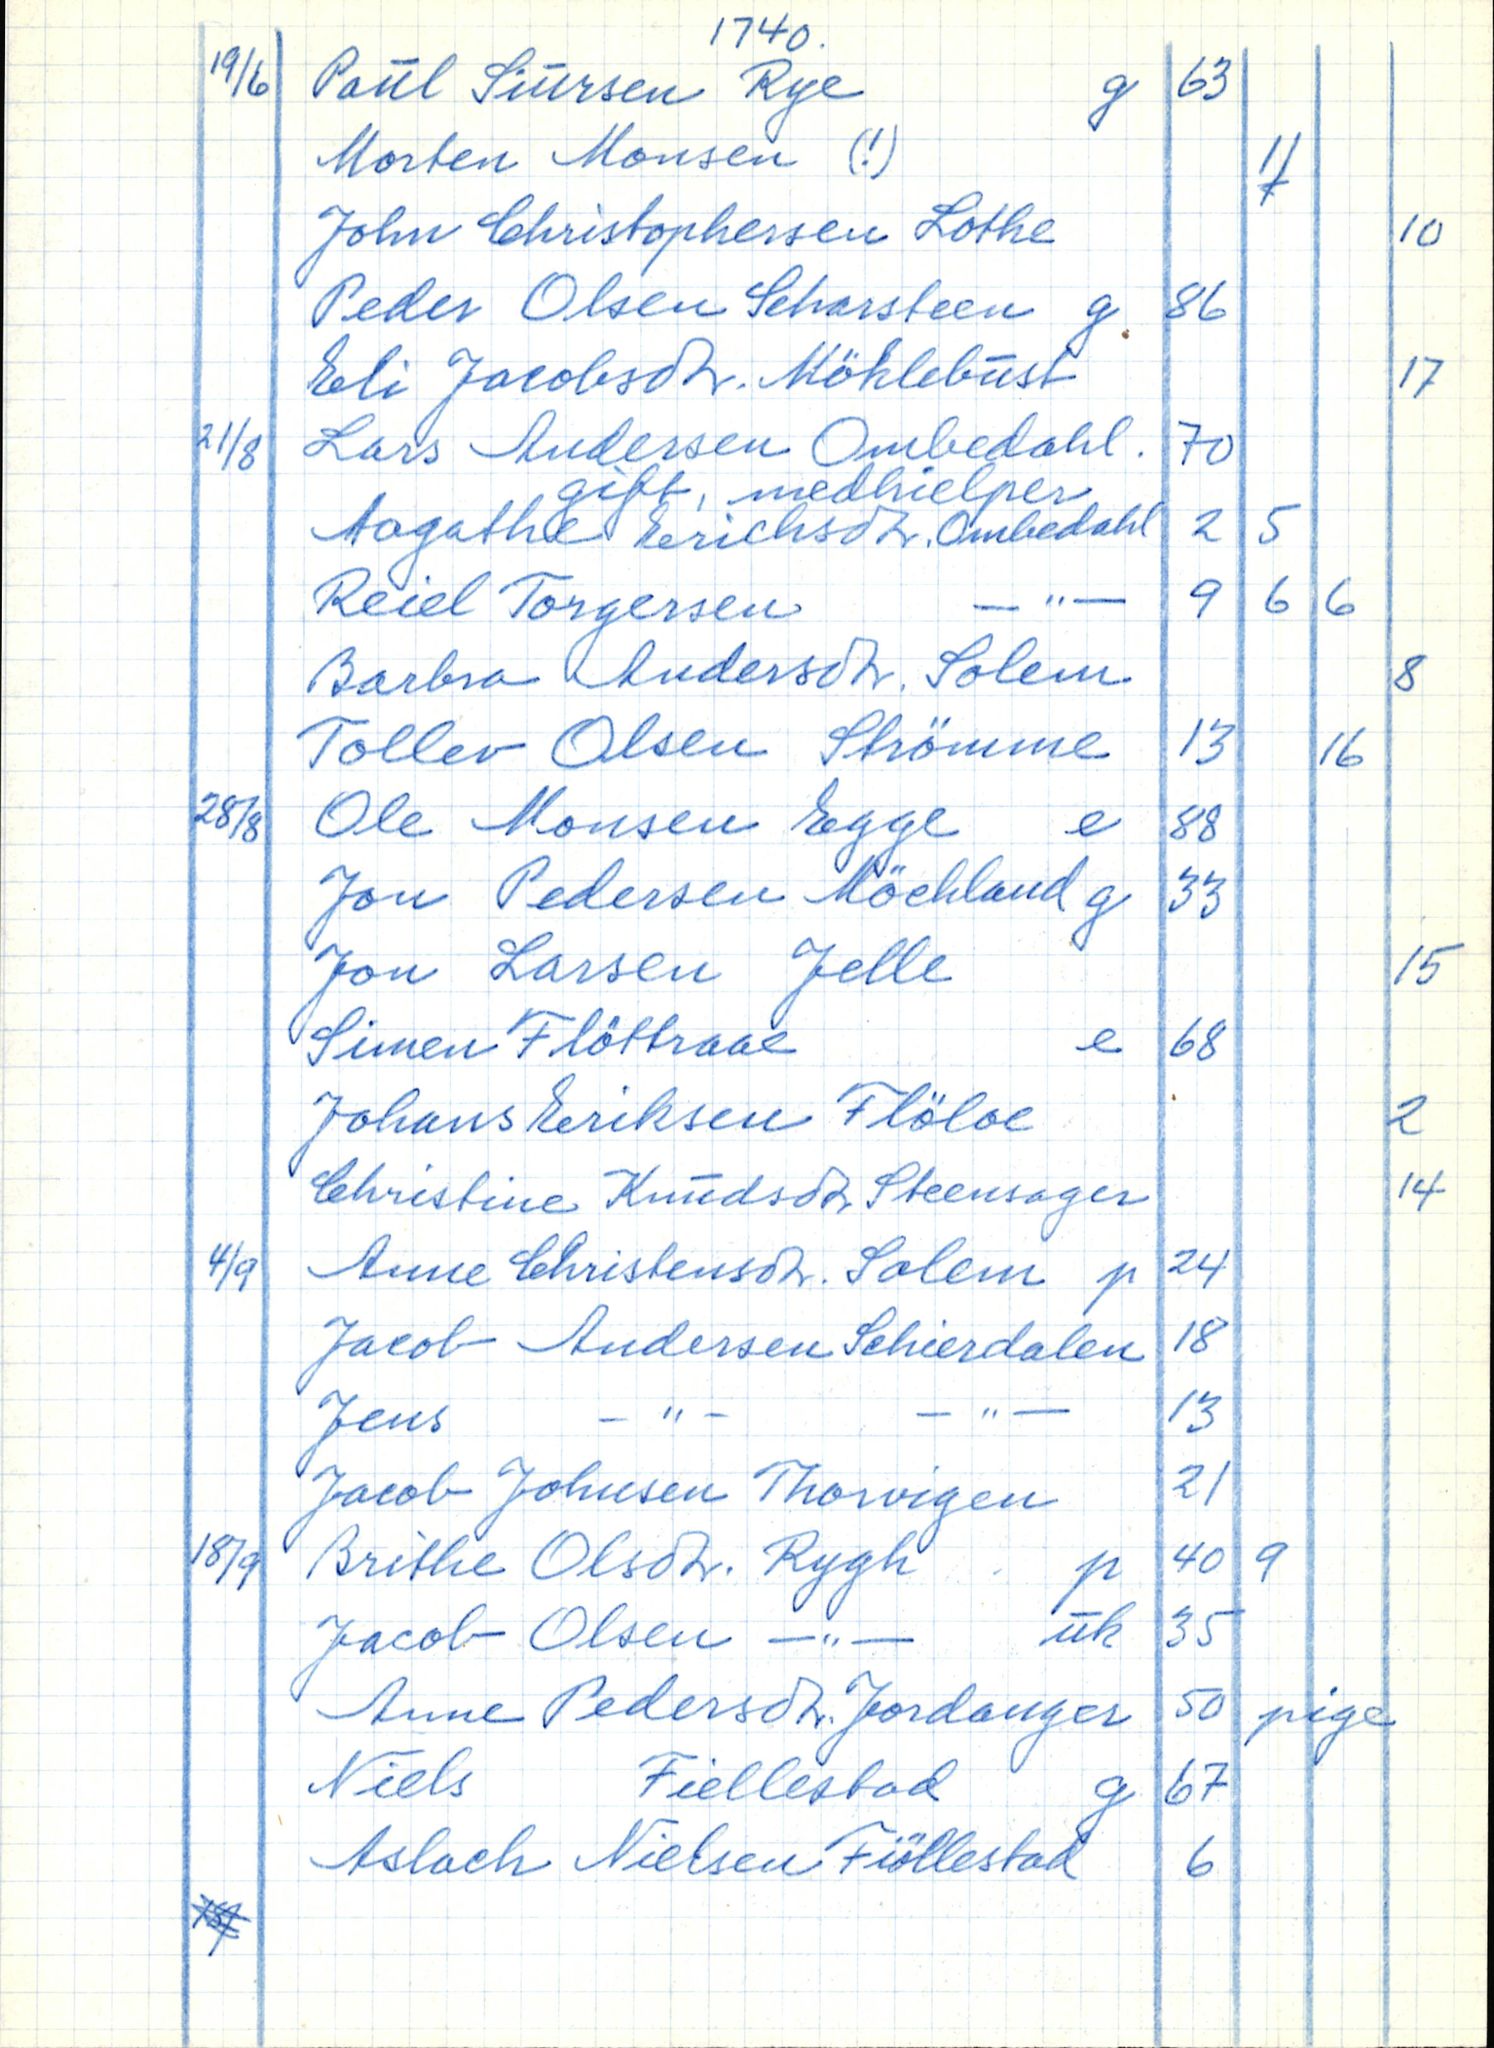 1740.
19/6 Paūl Siūrsen Rye g 63
Morten Monsen (!)
John Christophersen Lothe 10
Peder Olsen Scharsteen g 86
Eli Jacobsdtr. Möklebūst 17
21/8 Lars Andersen Ombedahl. 70
gift, medhielper
Aagathe Erichsdtr. Ombedahl 2 5
Reiel Torgersen —"— 9 6 6
Barbra Andersdtr. Solem 8
Tollev Olsen Strömme 13 16
28/8 Ole Monsen Egge e 88
Jon Pedersen Möchland g 33
Jon Larsen Jelle 15
Simen Flöttraae e 68
Johans Eriksen Flöloe 2
Christine Knūdsdtr Steensager 14
4/9 Anne Christensdtr. Solem p 24
Jacob Andersen Schierdalen 18
Jens -"- -"— 13
Jacob Johnsen Thorvigen 21
18/9 Brithe Olsdtr. Rygh p 40 9
Jacob Olsen —"— ūk 35
Anne Pedersdtr. Jordanger 50 pige
Niels Fiellestad g 67
Aslach Nielsen Fiöllestad 6